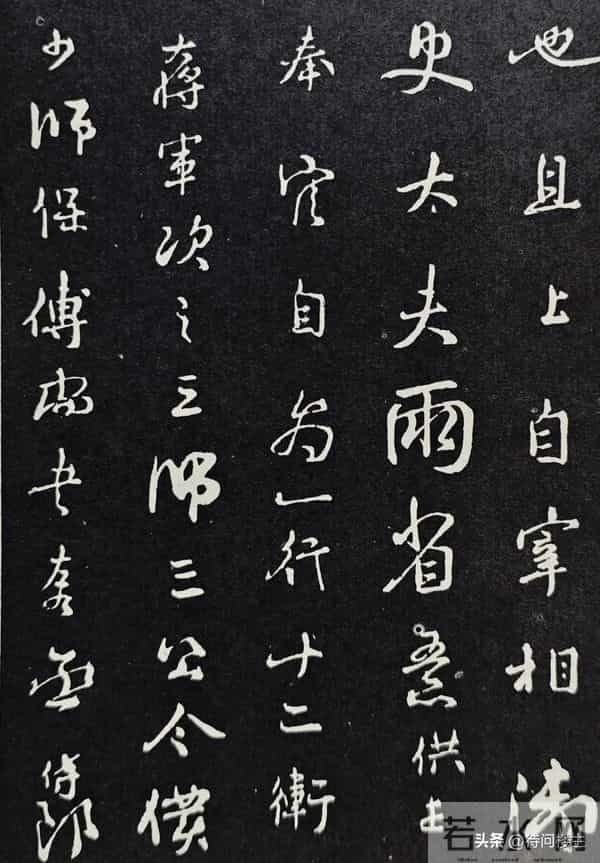 也且上自宰相御
史大夫兩省五品已供上
奉官自為一行十二衛
大將軍次之三師三公令僕
少師保傅尚書左右丞侍郎
若水
头条 @待问楼主